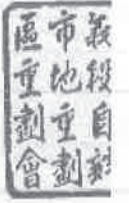 段自辦
市地重劃
區重劃會